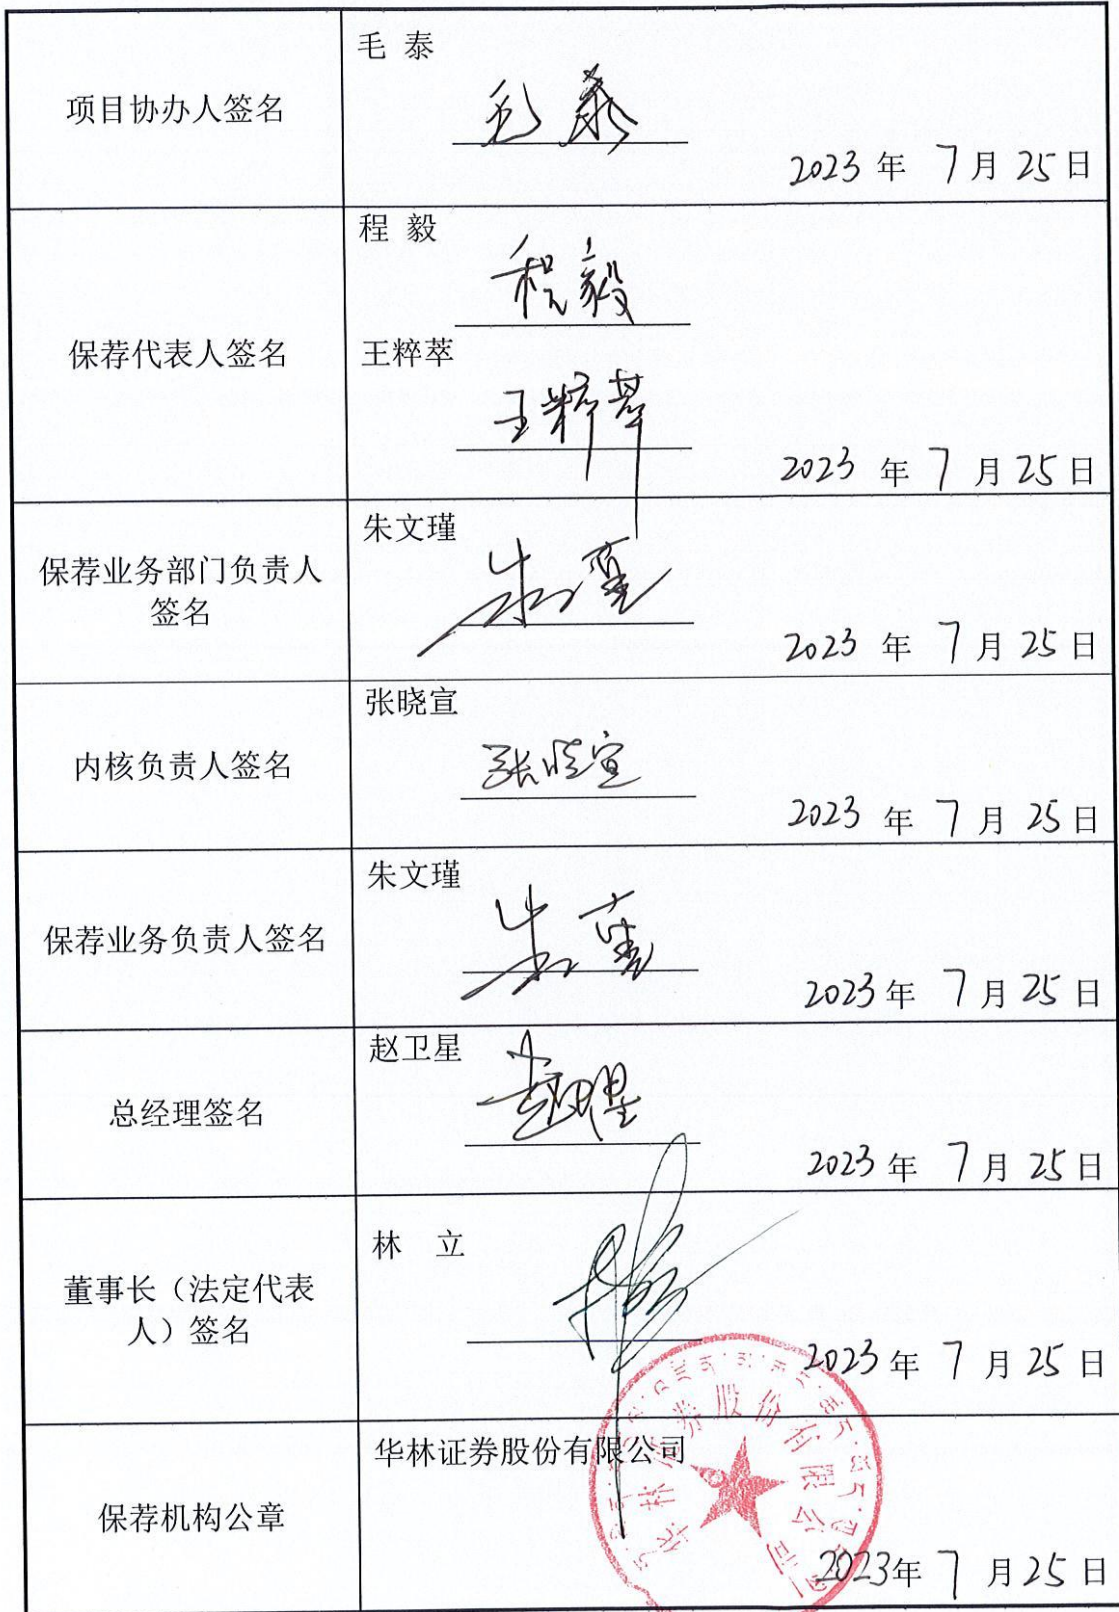 项目协办人签名
毛 泰
毛泰
2023 年 7 月 25 日
保荐代表人签名
程 毅
程毅
王粹萃
王粹萃
2023 年 7 月 25 日
保荐业务部门负责人
签名
朱文瑾
2023 年 7 月 25 日
内核负责人签名
张晓宣
张晓宣
2023 年 7 月 25 日
保荐业务负责人签名
朱文瑾
2023 年 7 月 25 日
总经理签名
赵卫星
2023 年 7 月 25 日
董事长（法定代表
人）签名
林 立
2023 年 7 月 25 日
保荐机构公章
华林证券股份有限公司
华林证券股份有限公司
2023 年 7 月 25 日